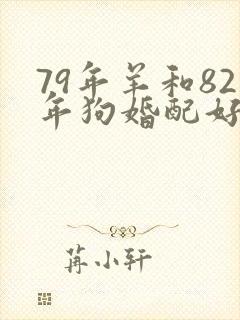 79年羊和82
年狗婚配好
苒小轩